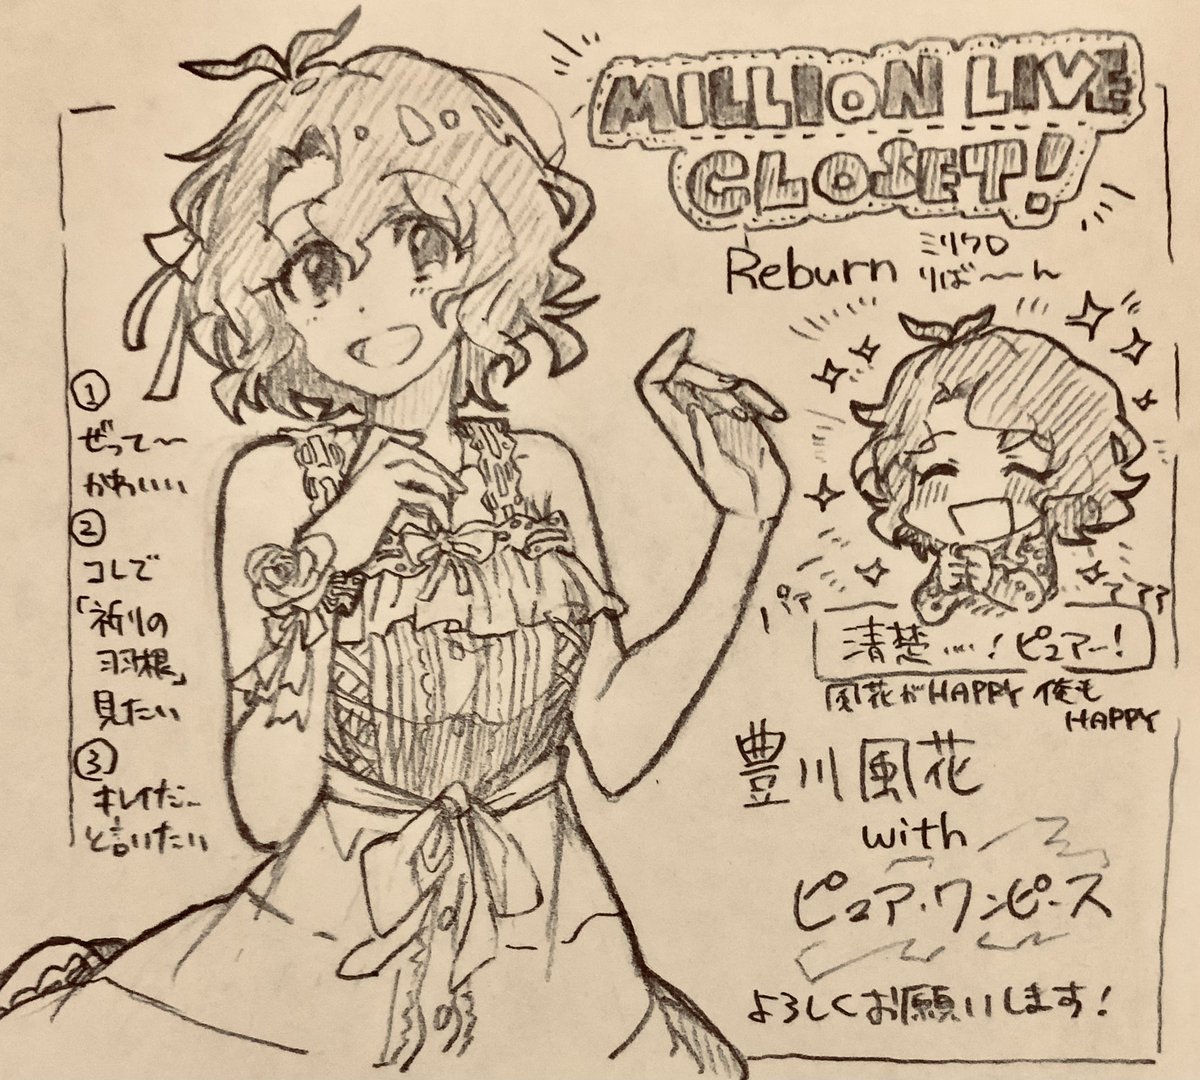 MILLION LIVE
CLOSET!
Reburn
ミリクロ
りば〜〜ん
①
ぜって〜
かわいい
②
コレで
「祈りの
羽根」
見たい
③
キレイだ〜
と言いたい
パァ
ァァァ
清楚…!ピュアー!
風花がHAPPY 俺も
HAPPY
豊川風花
with
ピュア・ワンピース
よろしくお願いします!